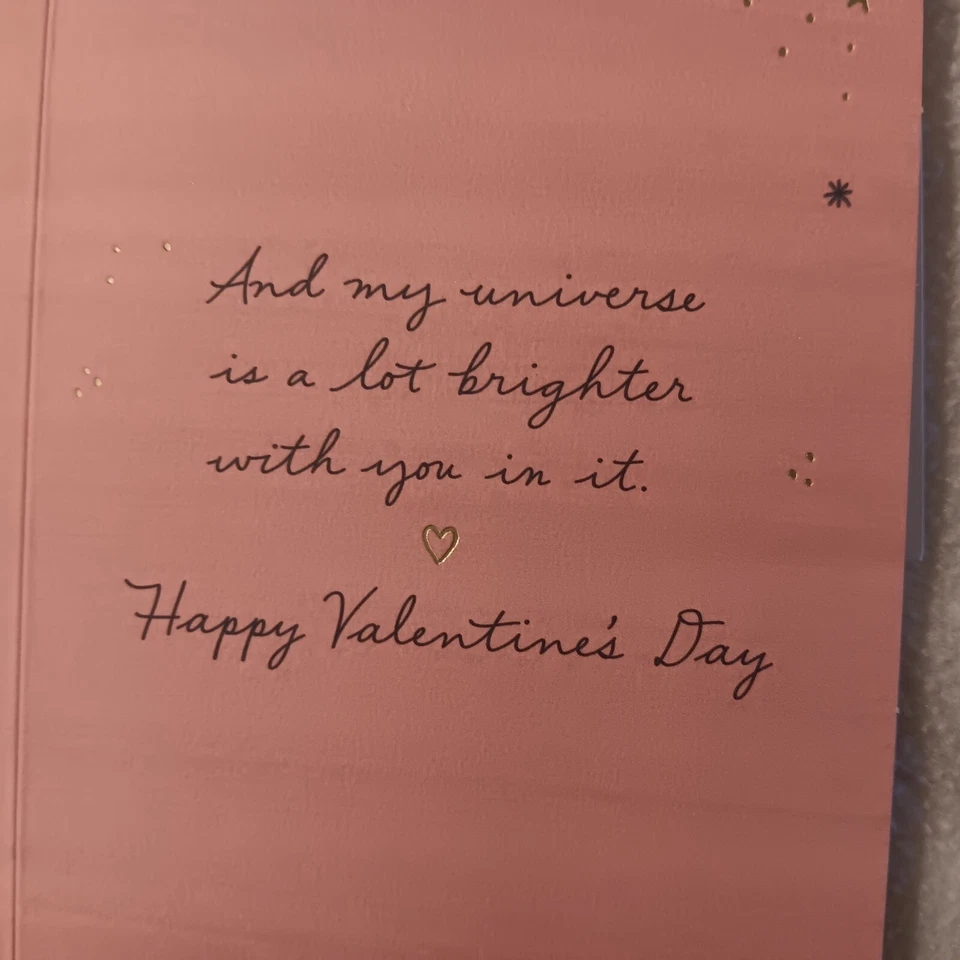 And my universe
is a lot brighter
with you in it.
Happy Valentine's Day